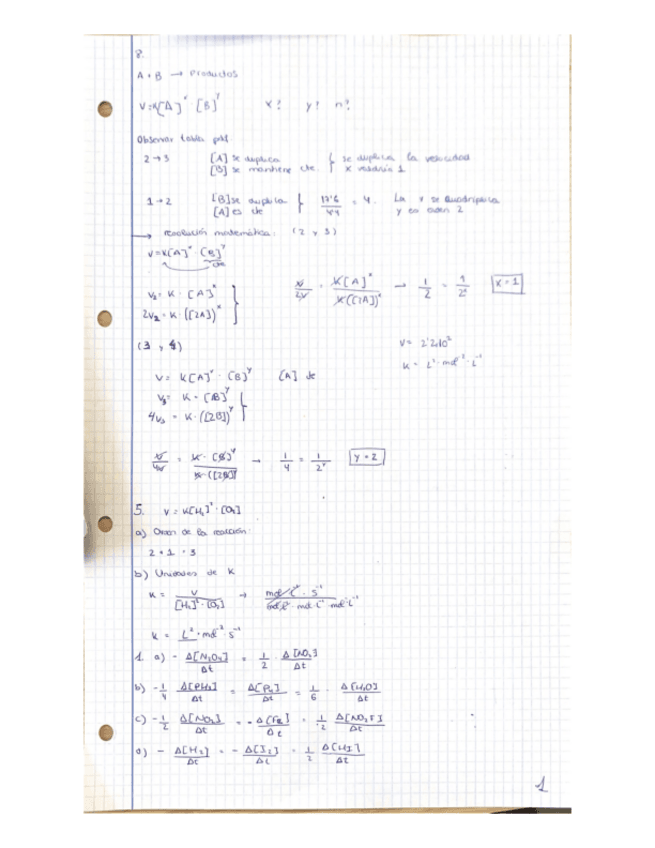 8.
A + B → Productos
V = K[A]ˣ · [B]ʸ x? y? n?
Observar tabla pdf.
2 → 3 [A] se duplica } se duplica la velocidad
[B] se mantiene cte. x valdría 1
1 → 2 [B] se duplica } 17'6/4'4 = 4. La v se quadriplica
[A] es cte y es orden 2
→ resolución matemática: (2 y 3)
V = K[A]ˣ · [B]ʸ
cte
V₂ = K · [A]ˣ
2V₂ = K · ([2A])ˣ
V/2V = K[A]ˣ / K([2A])ˣ → 1/2 = 1/2ˣ x = 1
(3 y 4)
V = K[A]ˣ · [B]ʸ [A] cte
V₃ = K · [B]ʸ
4V₃ = K · ([2B])ʸ
V/4V = K · [B]ʸ / K · ([2B])ʸ → 1/4 = 1/2ʸ y = 2
5. V = K[H₂]² · [O₂]
a) Orden de la reacción:
2 + 1 = 3
b) Unidades de K
K = V / [H₂]² · [O₂] → mol · L⁻¹ · s⁻¹ / mol · L⁻¹ · mol · L⁻¹ · mol · L⁻¹
K = L² · mol⁻² · s⁻¹
1. a) - Δ[N₂O₄]/Δt = 1/2 · Δ[NO₂]/Δt
b) - 1/4 Δ[PH₃]/Δt = Δ[P₄]/Δt = 1/6 · Δ[H₂O]/Δt
c) - 1/2 Δ[NO₂]/Δt = - Δ[F₂]/Δt = 1/2 Δ[NO₂F]/Δt
d) - Δ[H₂]/Δt = - Δ[I₂]/Δt = 1/2 Δ[HI]/Δt
1